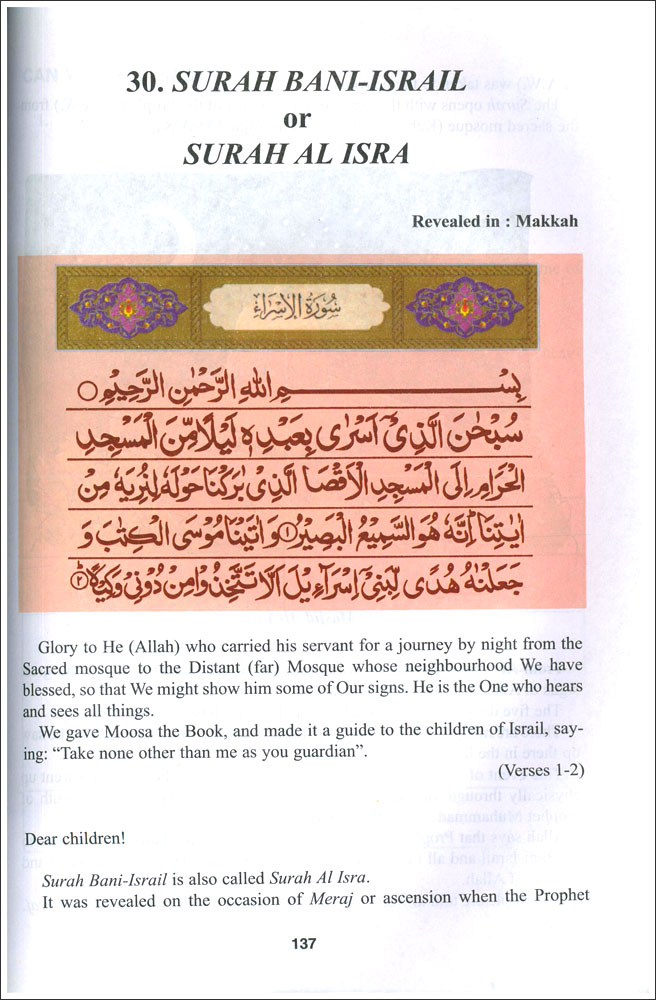 30. SURAH BANI-ISRAIL
or
SURAH AL ISRA
Revealed in : Makkah
سُورَةُ الإِسْرَاءِ
بِسْمِ اللهِ الرَّحْمٰنِ الرَّحِيْمِ
سُبْحٰنَ الَّذِيْٓ اَسْرٰى بِعَبْدِهٖ لَيْلًا مِّنَ الْمَسْجِدِ
الْحَرَامِ اِلَى الْمَسْجِدِ الْاَقْصَا الَّذِيْ بٰرَكْنَا حَوْلَهٗ لِنُرِيَهٗ مِنْ
اٰيٰتِنَا ؕ اِنَّهٗ هُوَ السَّمِيْعُ الْبَصِيْرُ ۝۱ وَ اٰتَيْنَا مُوْسَى الْكِتٰبَ وَ
جَعَلْنٰهُ هُدًى لِّبَنِيْٓ اِسْرَآءِيْلَ اَلَّا تَتَّخِذُوْا مِنْ دُوْنِيْ وَكِيْلًا ؕ ۝۲
Glory to He (Allah) who carried his servant for a journey by night from the
Sacred mosque to the Distant (far) Mosque whose neighbourhood We have
blessed, so that We might show him some of Our signs. He is the One who hears
and sees all things.
We gave Moosa the Book, and made it a guide to the children of Israil, say-
ing: “Take none other than me as you guardian”.
(Verses 1-2)
Dear children!
Surah Bani-Israil is also called Surah Al Isra.
It was revealed on the occasion of Meraj or ascension when the Prophet
137